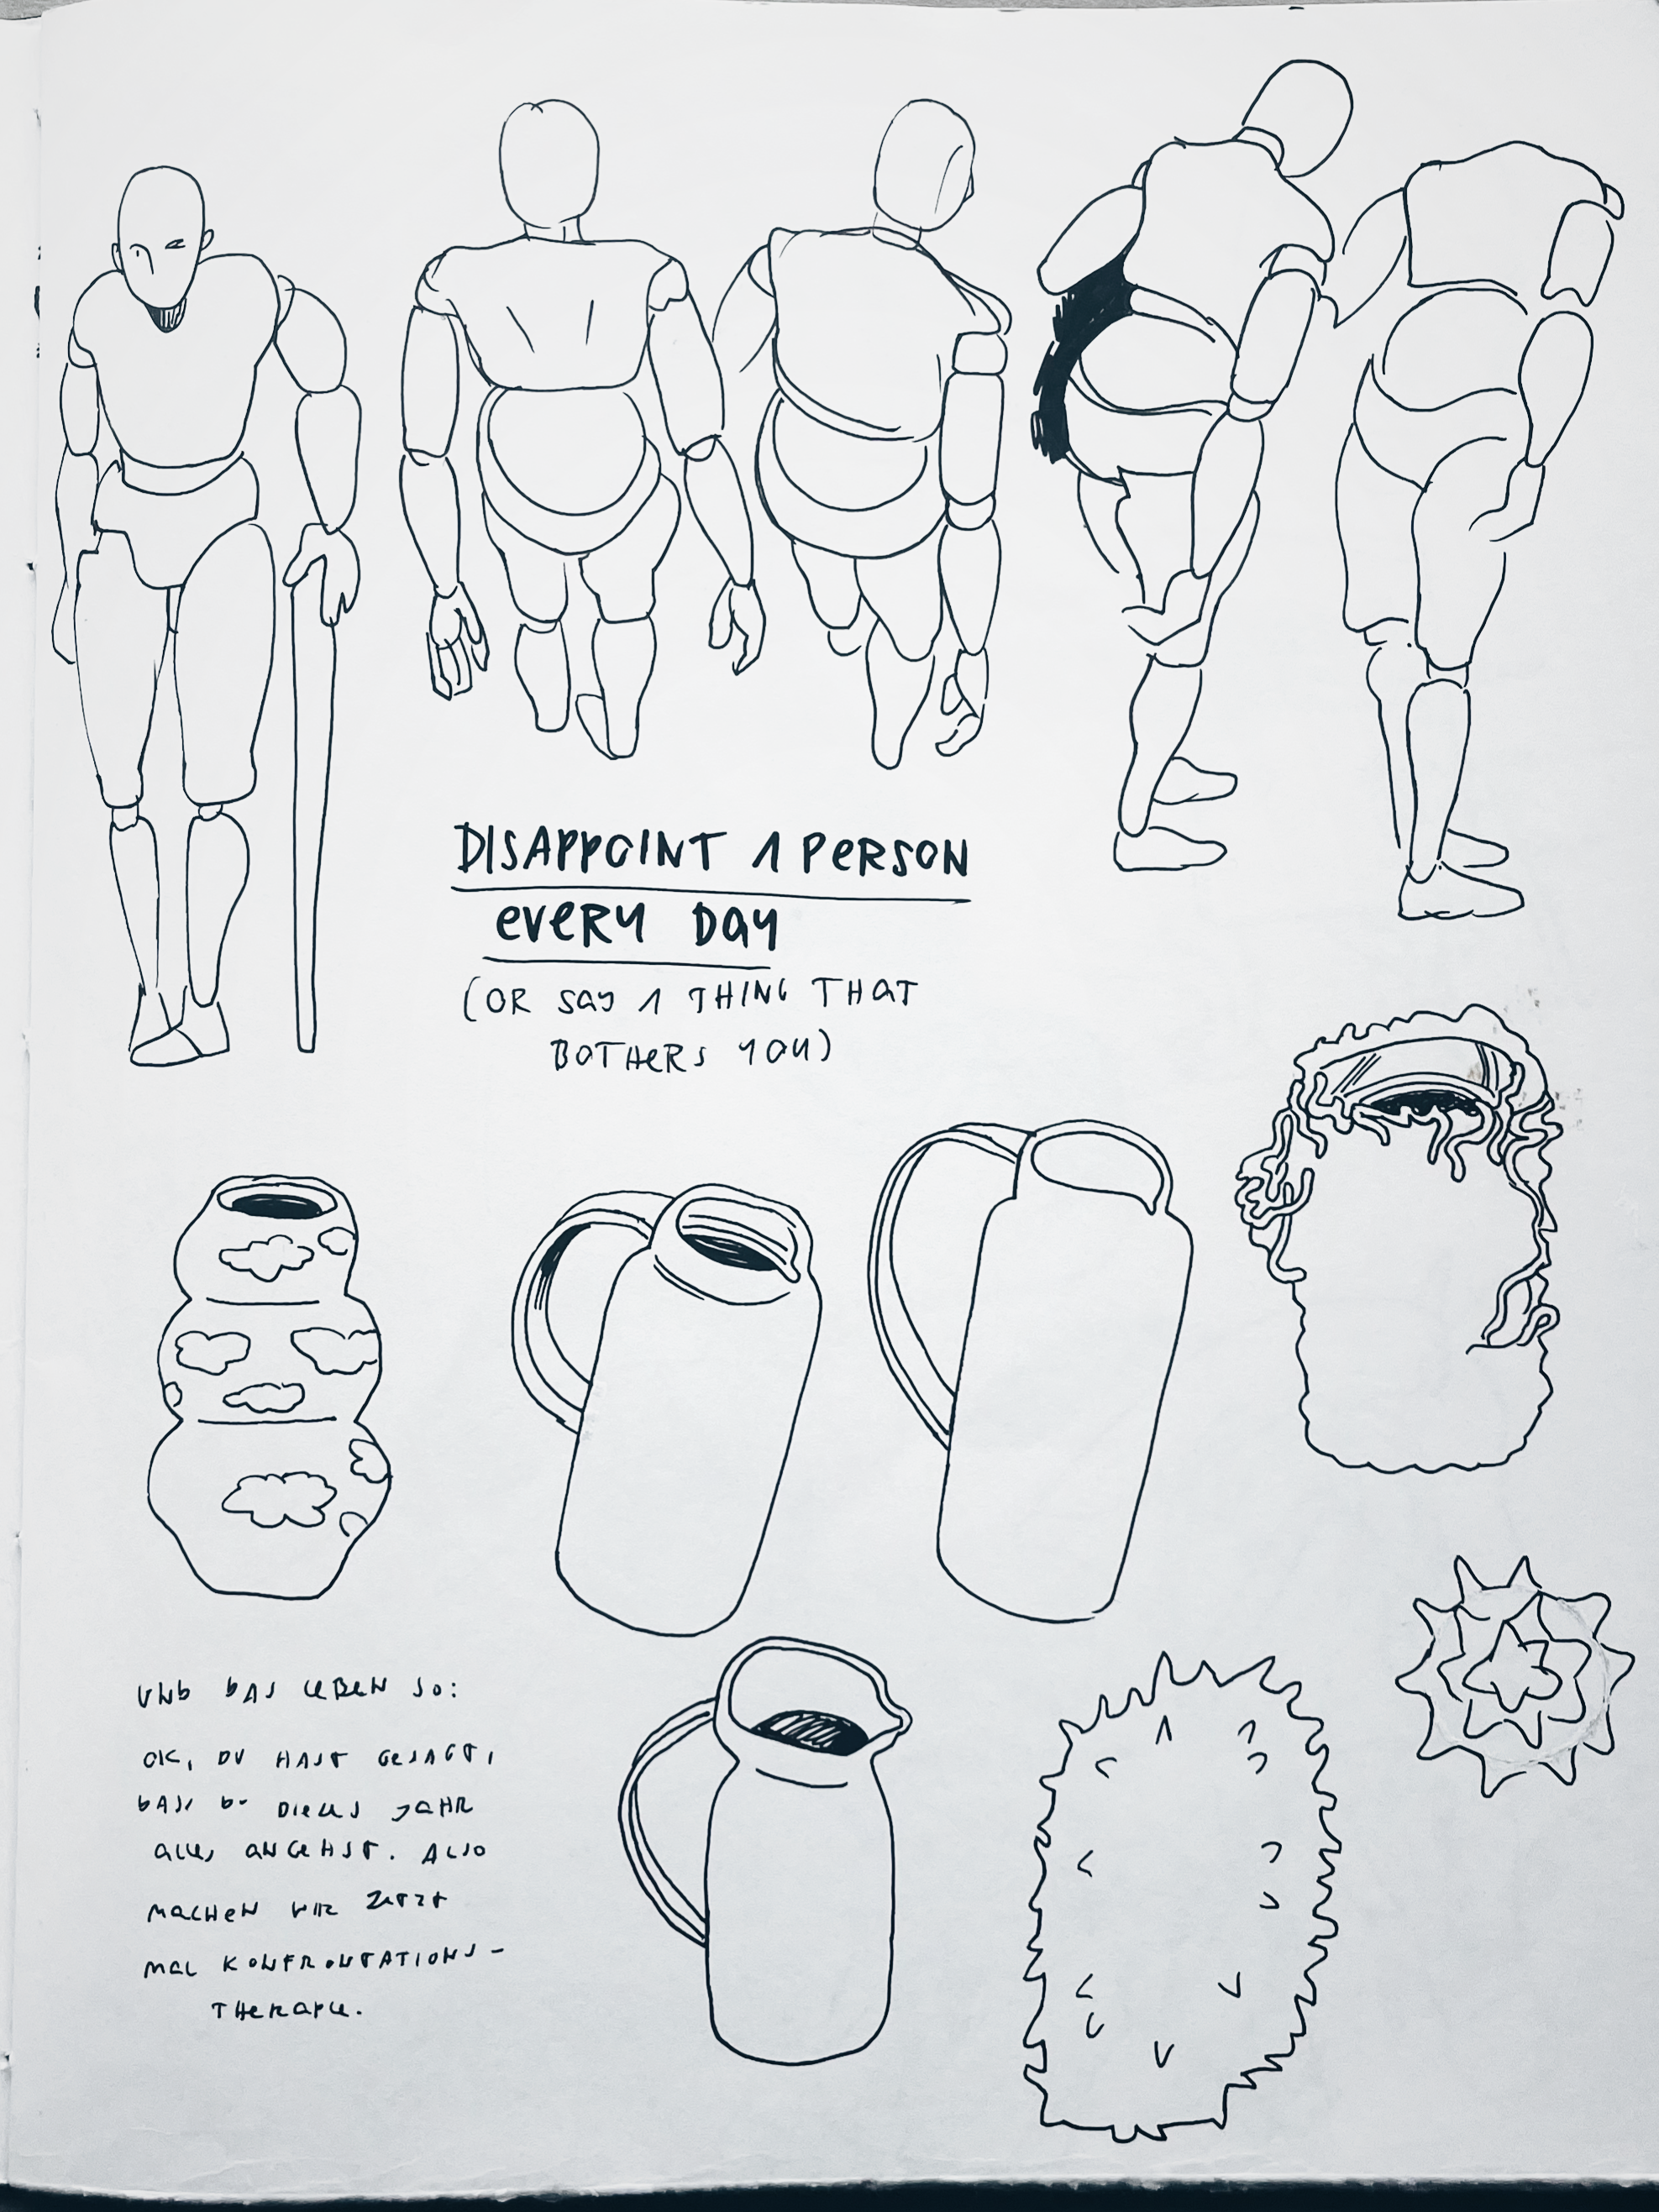 DISAPPOINT 1 PERSON
EVERY DAY
(OR SAY 1 THING THAT
BOTHERS YOU)
UND DAS LEBEN SO:
OK, DU HAST GESAGT,
DASS DU DIESES JAHR
ALLES ANGEHST. ALSO
MACHEN WIR JETZT
MAL KONFRONTATIONS-
THERAPIE.